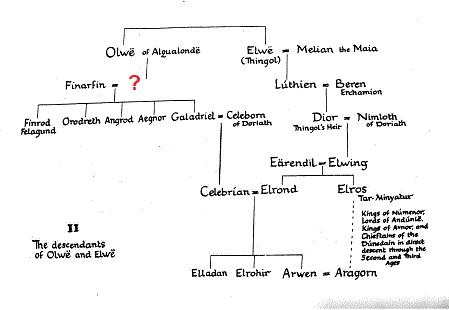 Olwë of Alqualondë
Elwë = Melian the Maia
(Thingol)
Finarfin = ?
Lúthien = Beren
Erchamion
Finrod
Felagund
Orodreth Angrod Aegnor Galadriel = Celeborn
of Doriath
Dior = Nimloth
Thingol's Heir
of Doriath
Eärendil = Elwing
Celebrían = Elrond
Elros
Tar-Minyatur
Kings of Númenor,
Lords of Andúnië,
Kings of Arnor, and
Chieftains of the
Dúnedain in direct
descent through the
Second and Third
Ages
II
The descendants
of Olwë and Elwë
Elladan Elrohir Arwen = Aragorn